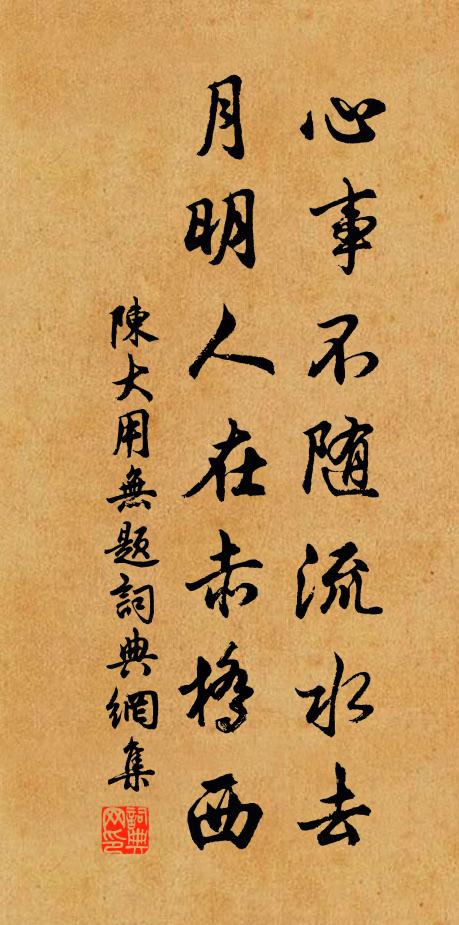 心事不随流水去
月明人在赤橋西
陳大用無題詞典網集
詞典網印